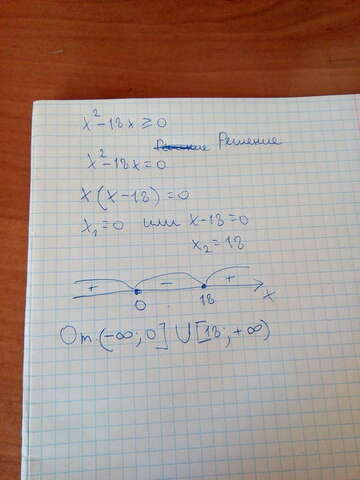 x²-18x≥0
Решение
x²-18x=0
x(x-18)=0
x₁=0 или x-18=0
x₂=18
+ - +
0 18 x
От. (-∞; 0] ∪ [18; +∞)